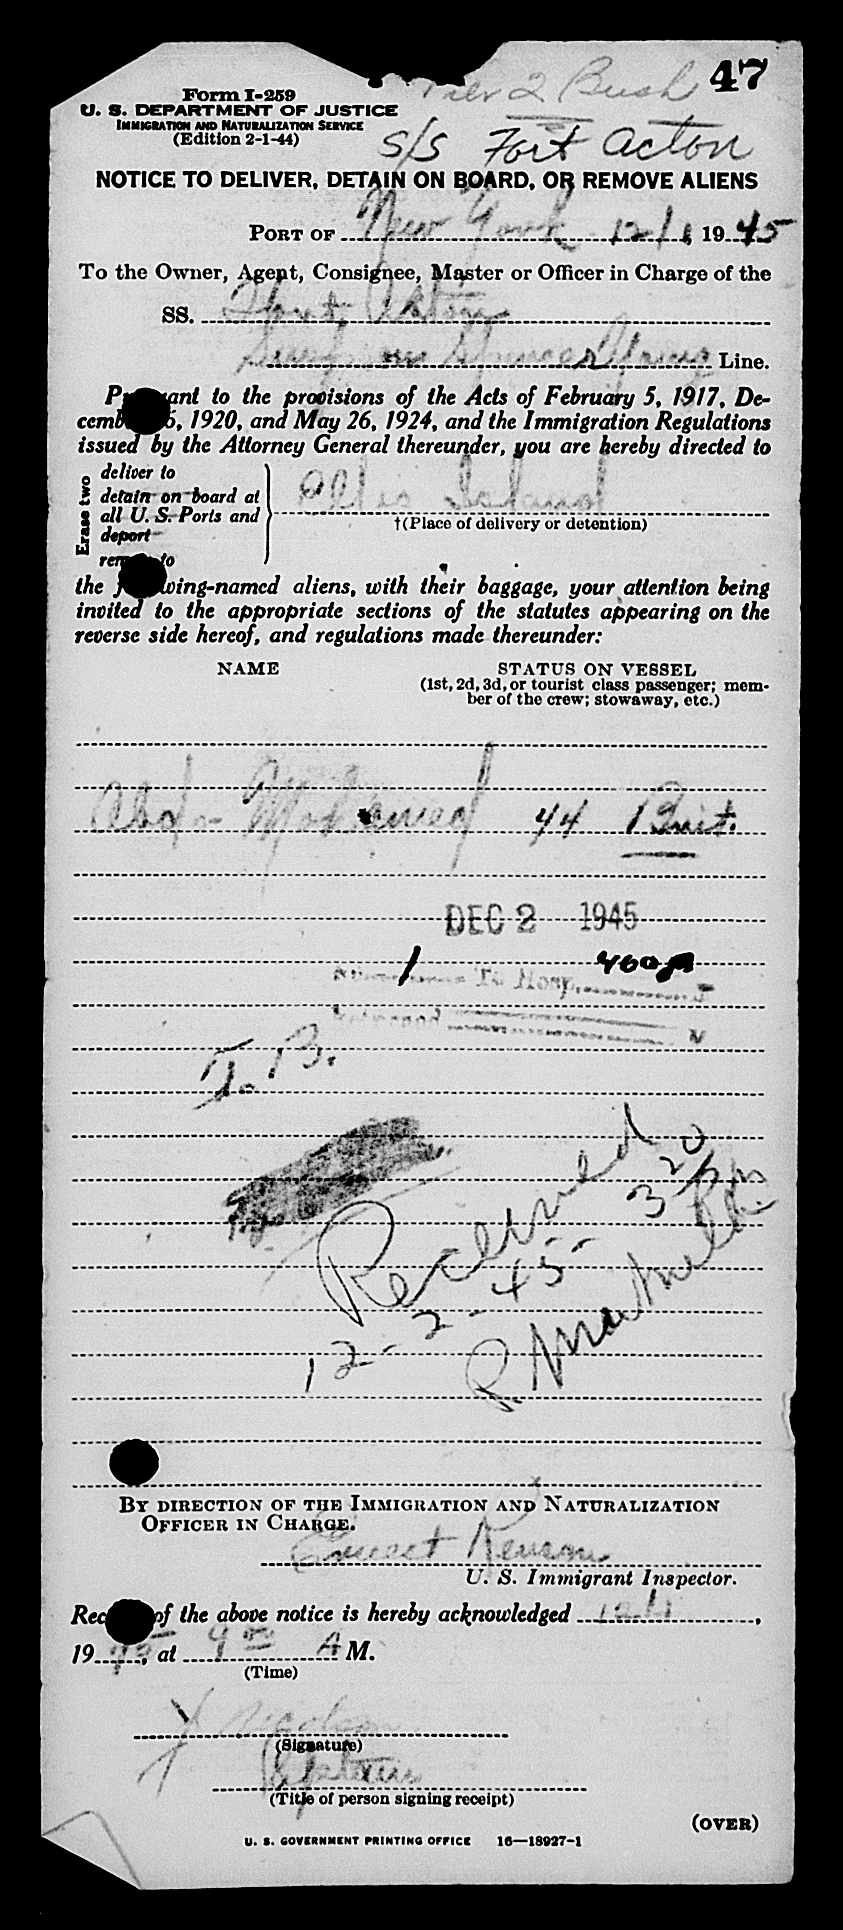 Pier 2 Bush 47
Form I-259
U. S. DEPARTMENT OF JUSTICE
IMMIGRATION AND NATURALIZATION SERVICE
(Edition 2-1-44)
S/S Fort Acton
NOTICE TO DELIVER, DETAIN ON BOARD, OR REMOVE ALIENS
PORT OF New York 12/1 1945
To the Owner, Agent, Consignee, Master or Officer in Charge of the
SS. Fort Akton
Line.
Pursuant to the provisions of the Acts of February 5, 1917, De-
cember 5, 1920, and May 26, 1924, and the Immigration Regulations
issued by the Attorney General thereunder, you are hereby directed to
Erase two
deliver to
detain on board at
all U. S. Ports and
deport
remove to
Ellis Island
†(Place of delivery or detention)
the following-named aliens, with their baggage, your attention being
invited to the appropriate sections of the statutes appearing on the
reverse side hereof, and regulations made thereunder:
NAME STATUS ON VESSEL
(1st, 2d, 3d, or tourist class passenger; mem-
ber of the crew; stowaway, etc.)
Abdo Mohamed 44 Brit.
DEC 2 1945
1 To Hosp.
T. B.
Received 3 20
12-2-45-
BY DIRECTION OF THE IMMIGRATION AND NATURALIZATION
OFFICER IN CHARGE.
Ernest
U. S. Immigrant Inspector.
Receipt of the above notice is hereby acknowledged 12/1,
1945, at 9 00 A M.
(Time)
X
(Signature)
Captain
(Title of person signing receipt)
(OVER)
U. S. GOVERNMENT PRINTING OFFICE 16—18927-1